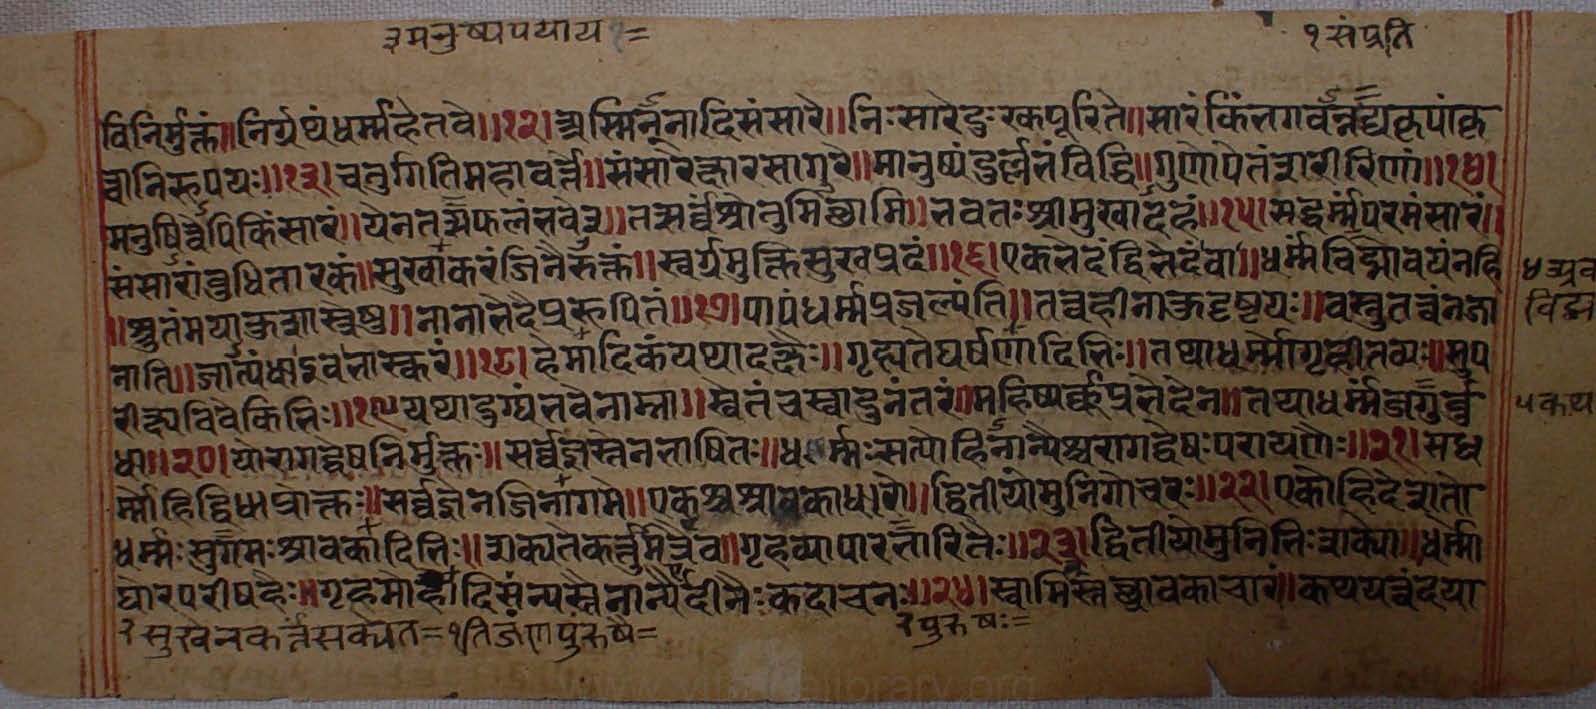 ३मनुष्यपर्याय १=
१ संप्रति
विनिर्मुक्तं॥निर्ग्रथंधर्म्महेतवे॥१२॥अस्मिन्ननादिसंसारे॥निःसारेदुःखपूरिते॥सारंकिंभगवन्नद्यकृपांकृ
त्वानिरुपयः॥१३॥चतुर्गतिमहावर्त्ते॥संसारेक्षारसागरे॥मानुष्यंदुर्ल्लभंविद्धि॥गुणोपेतंशरीरिणां॥१४॥
मनुषित्वेपिकिंसारं॥येनतत्सफलंभवेत्॥तत्सर्वंश्रोतुमिछामि॥भवतःश्रीमुखादहं॥१५॥सद्धर्म्मंपरमंसारं॥
संसारांबुधितारकं॥सुखाकरंजिनैरुक्तं॥स्वर्गमुक्तिसुखप्रदं॥१६॥एकभेदंद्विभेदंवा॥धर्म्मंविद्मोवयंनहि
॥श्रुतंमयाकुशास्त्रेषु॥नानाभेदैप्ररुपितं॥१७॥पापंधर्म्मंप्रजल्पंति॥तत्वहीनाकुदृष्टयः॥वस्तुतत्वंनजा
नाति॥जात्यंधाइवभास्करं॥१८॥हेमादिकंयथादक्षैः॥गृह्यतेघर्षणादिभिः॥तथाधर्म्मोगृहीतव्यः॥सुप
रीक्ष्यविवेकिभिः॥१९॥यथादुग्धंभवेनाम्ना॥स्वेतंचस्वादुनंतरं॥महिष्यर्कप्रभेदेन॥तथाधर्म्मंजगुर्बु
धा॥२०॥योरागद्वेषनिर्मुक्तः॥सर्वज्ञस्तेनभाषितः॥धर्म्मःसत्योहिनान्यैश्चरागद्वेषःपरायणैः॥२१॥सध
र्म्मोहिद्विधाप्रोक्तः॥सर्वज्ञेनजिनागमे॥एकश्चश्रावकाधारो॥द्वितीयोमुनिगोचरः॥२२॥एकोहिदेशतो
धर्म्मःसुगमःश्रावकादिभिः॥शक्यतेकर्त्तुमत्रैव॥गृहव्यापारभारितैः॥२३॥द्वितीयोमुनिभिःशक्यो॥धर्म्मो
घोरपरीषहैः॥गृहमोहादिसंन्यस्तैनान्यैर्दीनैःकदाचनः॥२४॥स्वामिंस्तछ्रावकाचारं॥कथयत्वंदया
४
५ कथ
२सुखेनकर्तृसक्यते= १तिजंणपुरुषै=
२पुरुषः=
www.vitragelibrary.org